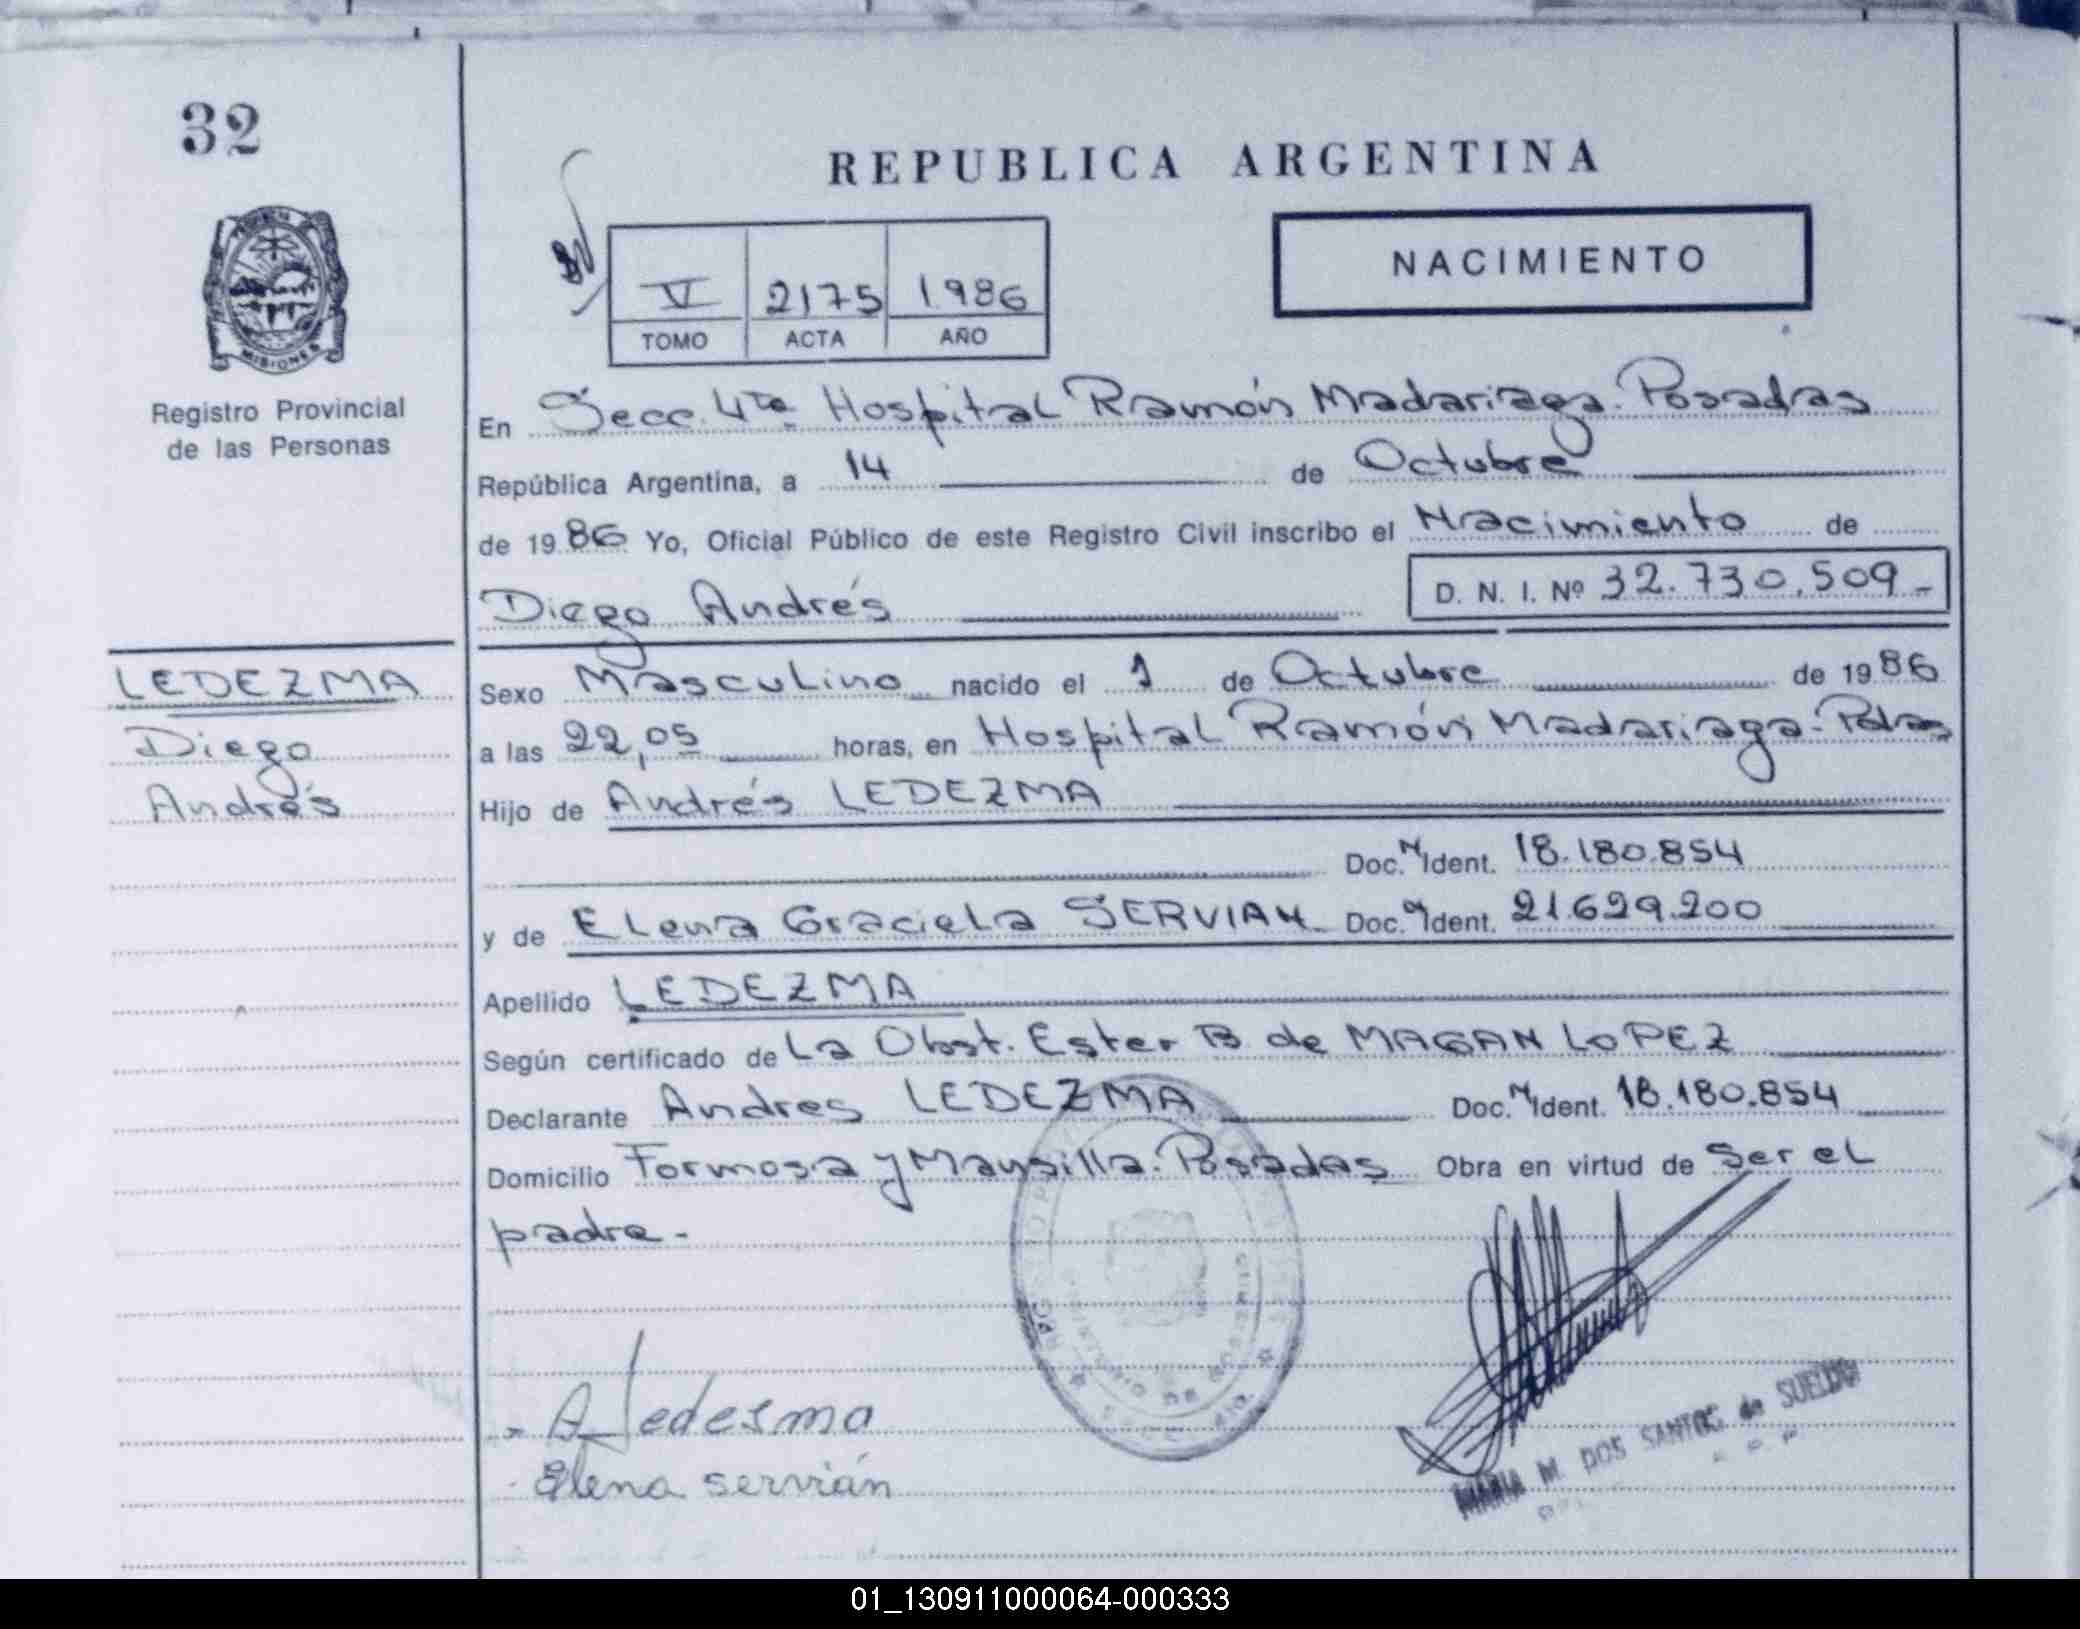 32
REPUBLICA ARGENTINA
NACIMIENTO
V 2175 1986
TOMO ACTA AÑO
MISIONES
Registro Provincial
de las Personas
En Secc. 4ta Hospital Ramón Madariaga. Posadas
República Argentina, a 14 de Octubre
de 1986 Yo, Oficial Público de este Registro Civil inscribo el Nacimiento de
Diego Andrés D. N. I. Nº 32.730.509.-
LEDEZMA
Diego
Andrés
Sexo Masculino nacido el 1 de Octubre de 1986
a las 22,05 horas, en Hospital Ramón Madariaga. Pdas
Hijo de Andrés LEDEZMA
Doc. N Ident. 18.180.854
y de Elena Graciela SERVIAN Doc. N Ident. 21.629.200
Apellido LEDEZMA
Según certificado de La Obst. Ester B de MAGAN LOPEZ
Declarante Andres LEDEZMA Doc. N Ident. 18.180.854
Domicilio Formosa y Mansilla. Posadas Obra en virtud de Ser el
padre.-
A Ledesma
Elena servián
MARIA M. DOS SANTOS de SUELDO
01_130911000064-000333